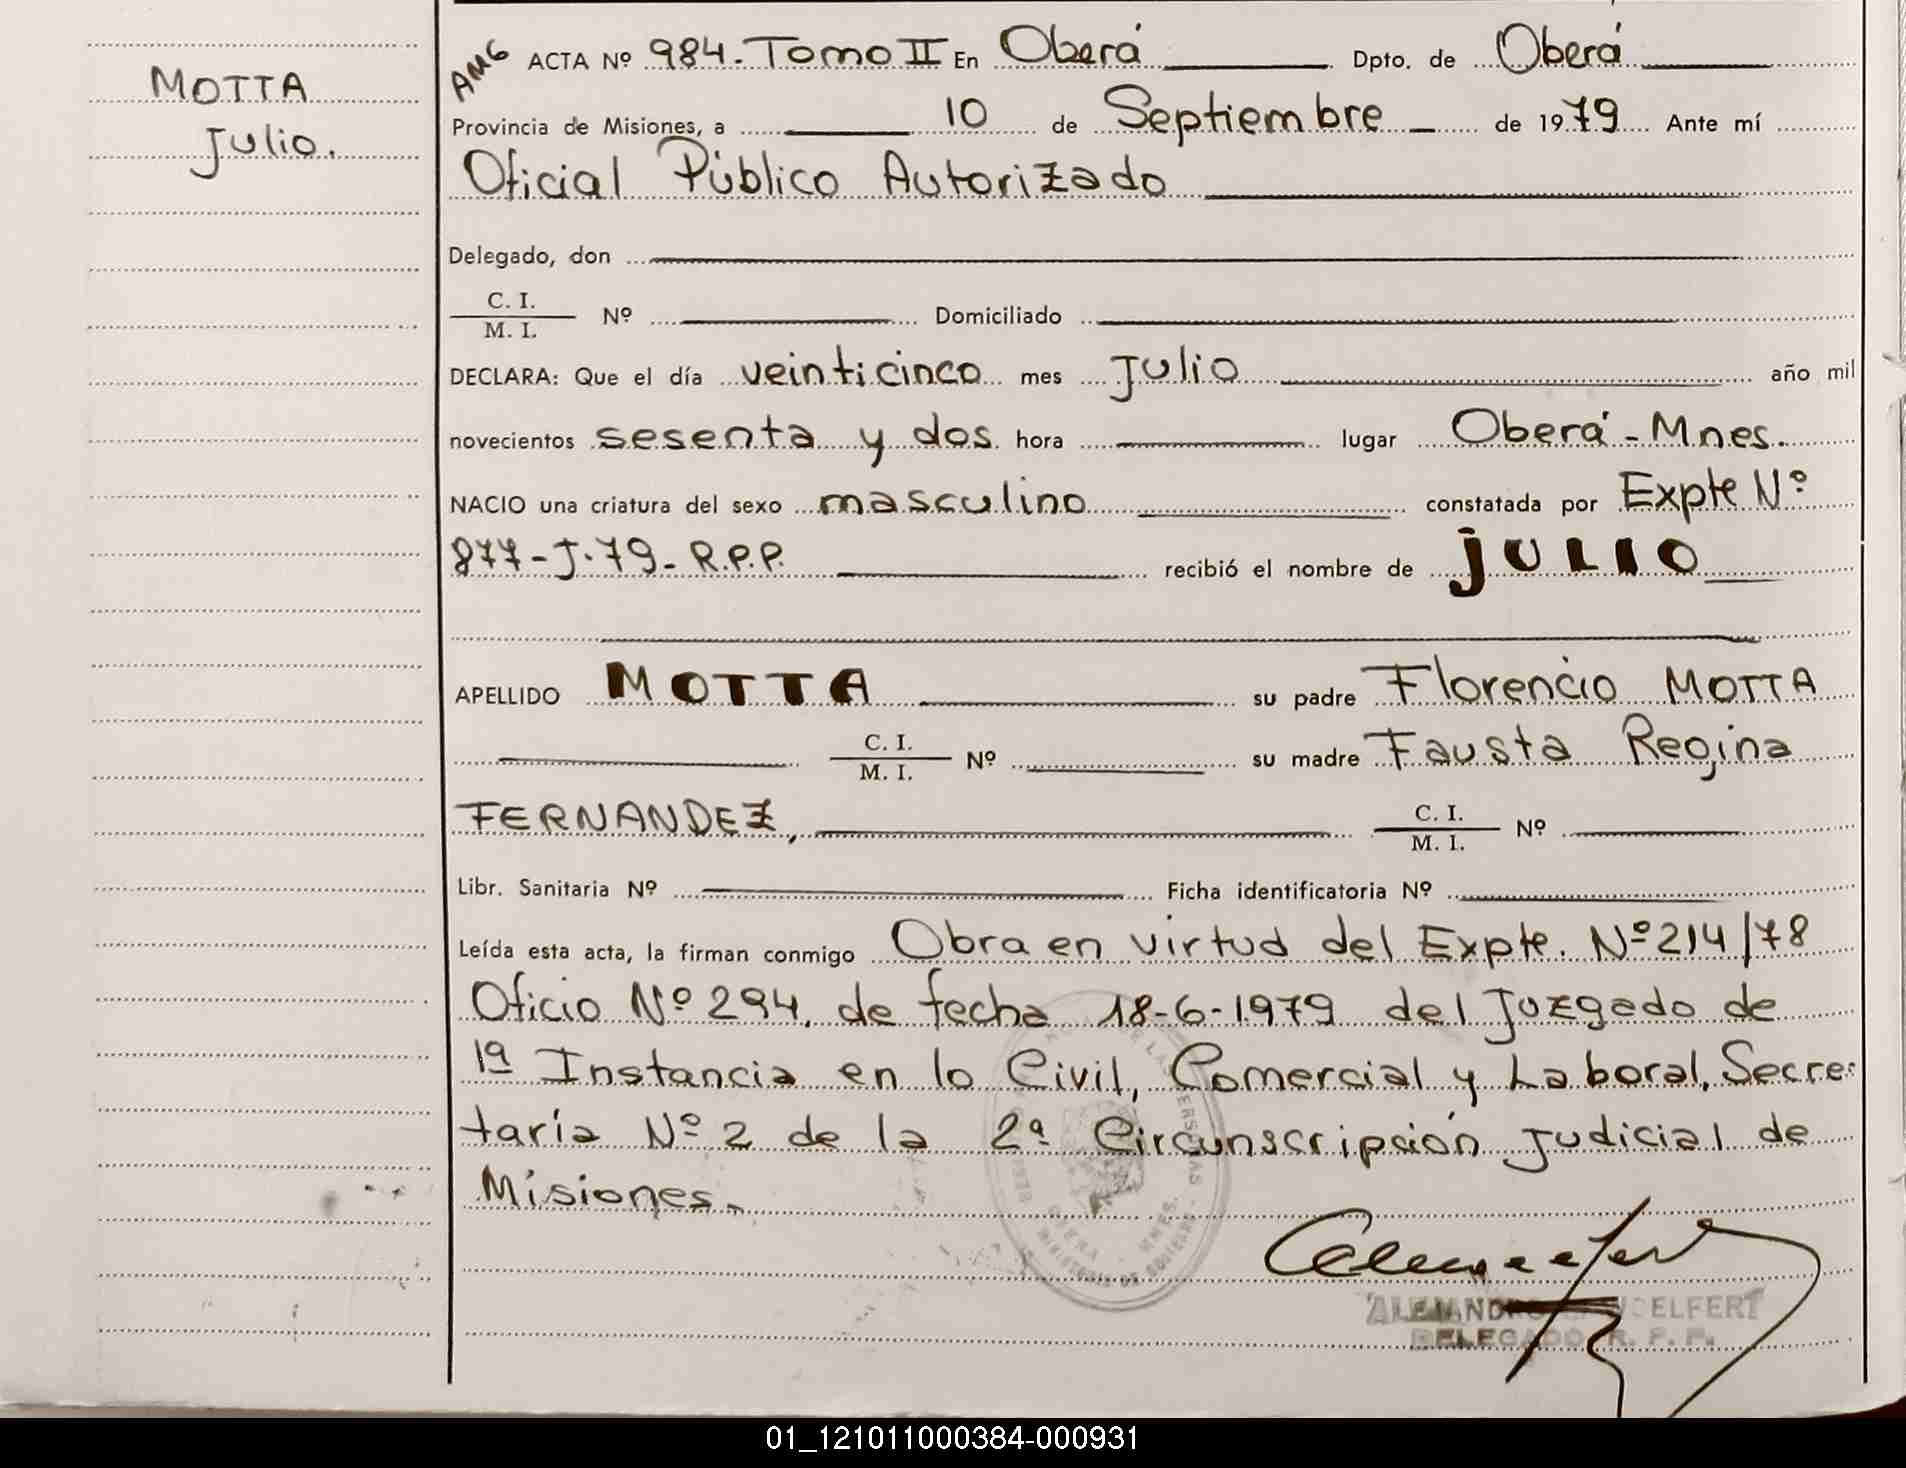 MOTTA
Julio.
AMG ACTA Nº 984. Tomo II En Oberá Dpto. de Oberá
Provincia de Misiones, a 10 de Septiembre de 1979 Ante mí
Oficial Público Autorizado
Delegado, don
C. I.
M. I.
Nº Domiciliado
DECLARA: Que el día veinticinco mes Julio año mil
novecientos sesenta y dos hora lugar Oberá - Mnes.
NACIO una criatura del sexo masculino constatada por Expte Nº
877-J-79- R.P.P. recibió el nombre de JULIO
APELLIDO MOTTA su padre Florencio MOTTA
C. I.
M. I.
Nº su madre Fausta Regina
FERNANDEZ,
C. I.
M. I.
Nº
Libr. Sanitaria Nº Ficha identificatoria Nº
Leída esta acta, la firman conmigo Obra en virtud del Expte. Nº 214/78
Oficio Nº 294, de fecha 18-6-1979 del Juzgado de
1ª Instancia en lo Civil, Comercial y Laboral, Secre-
taría Nº 2 de la 2ª Circunscripción Judicial de
Misiones.
OBERA - MNES.
MINISTERIO DE GOBIERNO
DELEGADO R. P. P.
01_121011000384-000931